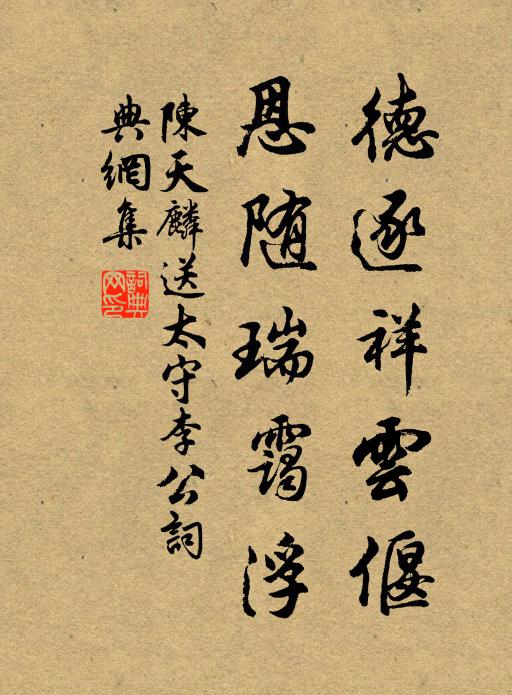 德逐祥雲偃
恩随瑞靄浮
陳天麟送太守李公詞
典網集
詞典網印